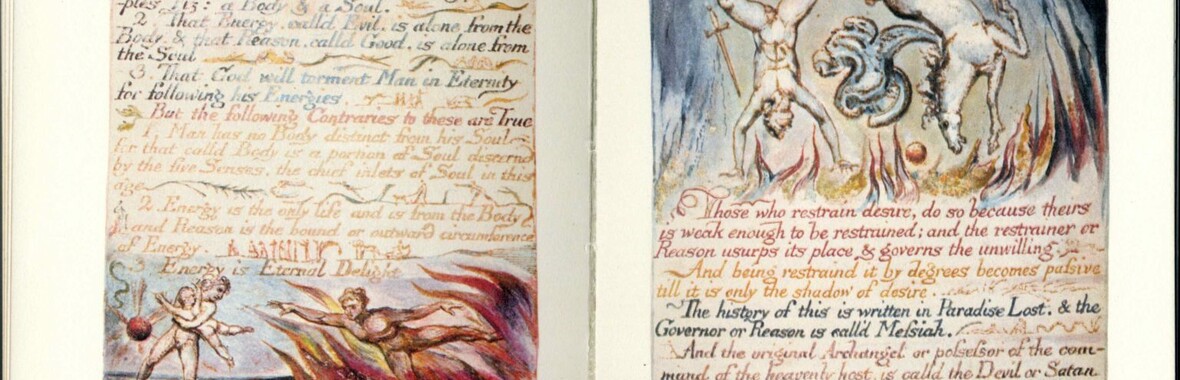 -ples Viz: a Body & a Soul.
2. That Energy. calld Evil. is alone from the
Body. & that Reason. calld Good. is alone from
the Soul
3. That God will torment Man in Eternity
for following his Energies
But the following Contraries to these are True
1. Man has no Body distinct from his Soul
for that calld Body is a portion of Soul discernd
by the five Senses. the chief inlets of Soul in this
age
2. Energy is the only life and is from the Body
and Reason is the bound or outward circumference
of Energy.
3 Energy is Eternal Delight
Those who restrain desire, do so because theirs
is weak enough to be restrained; and the restrainer or
Reason usurps its place & governs the unwilling.
And being restraind it by degrees becomes passive
till it is only the shadow of desire.
The history of this is written in Paradise Lost. & the
Governor or Reason is call'd Messiah.
And the original Archangel or possessor of the com-
mand of the heavenly host, is calld the Devil or Satan